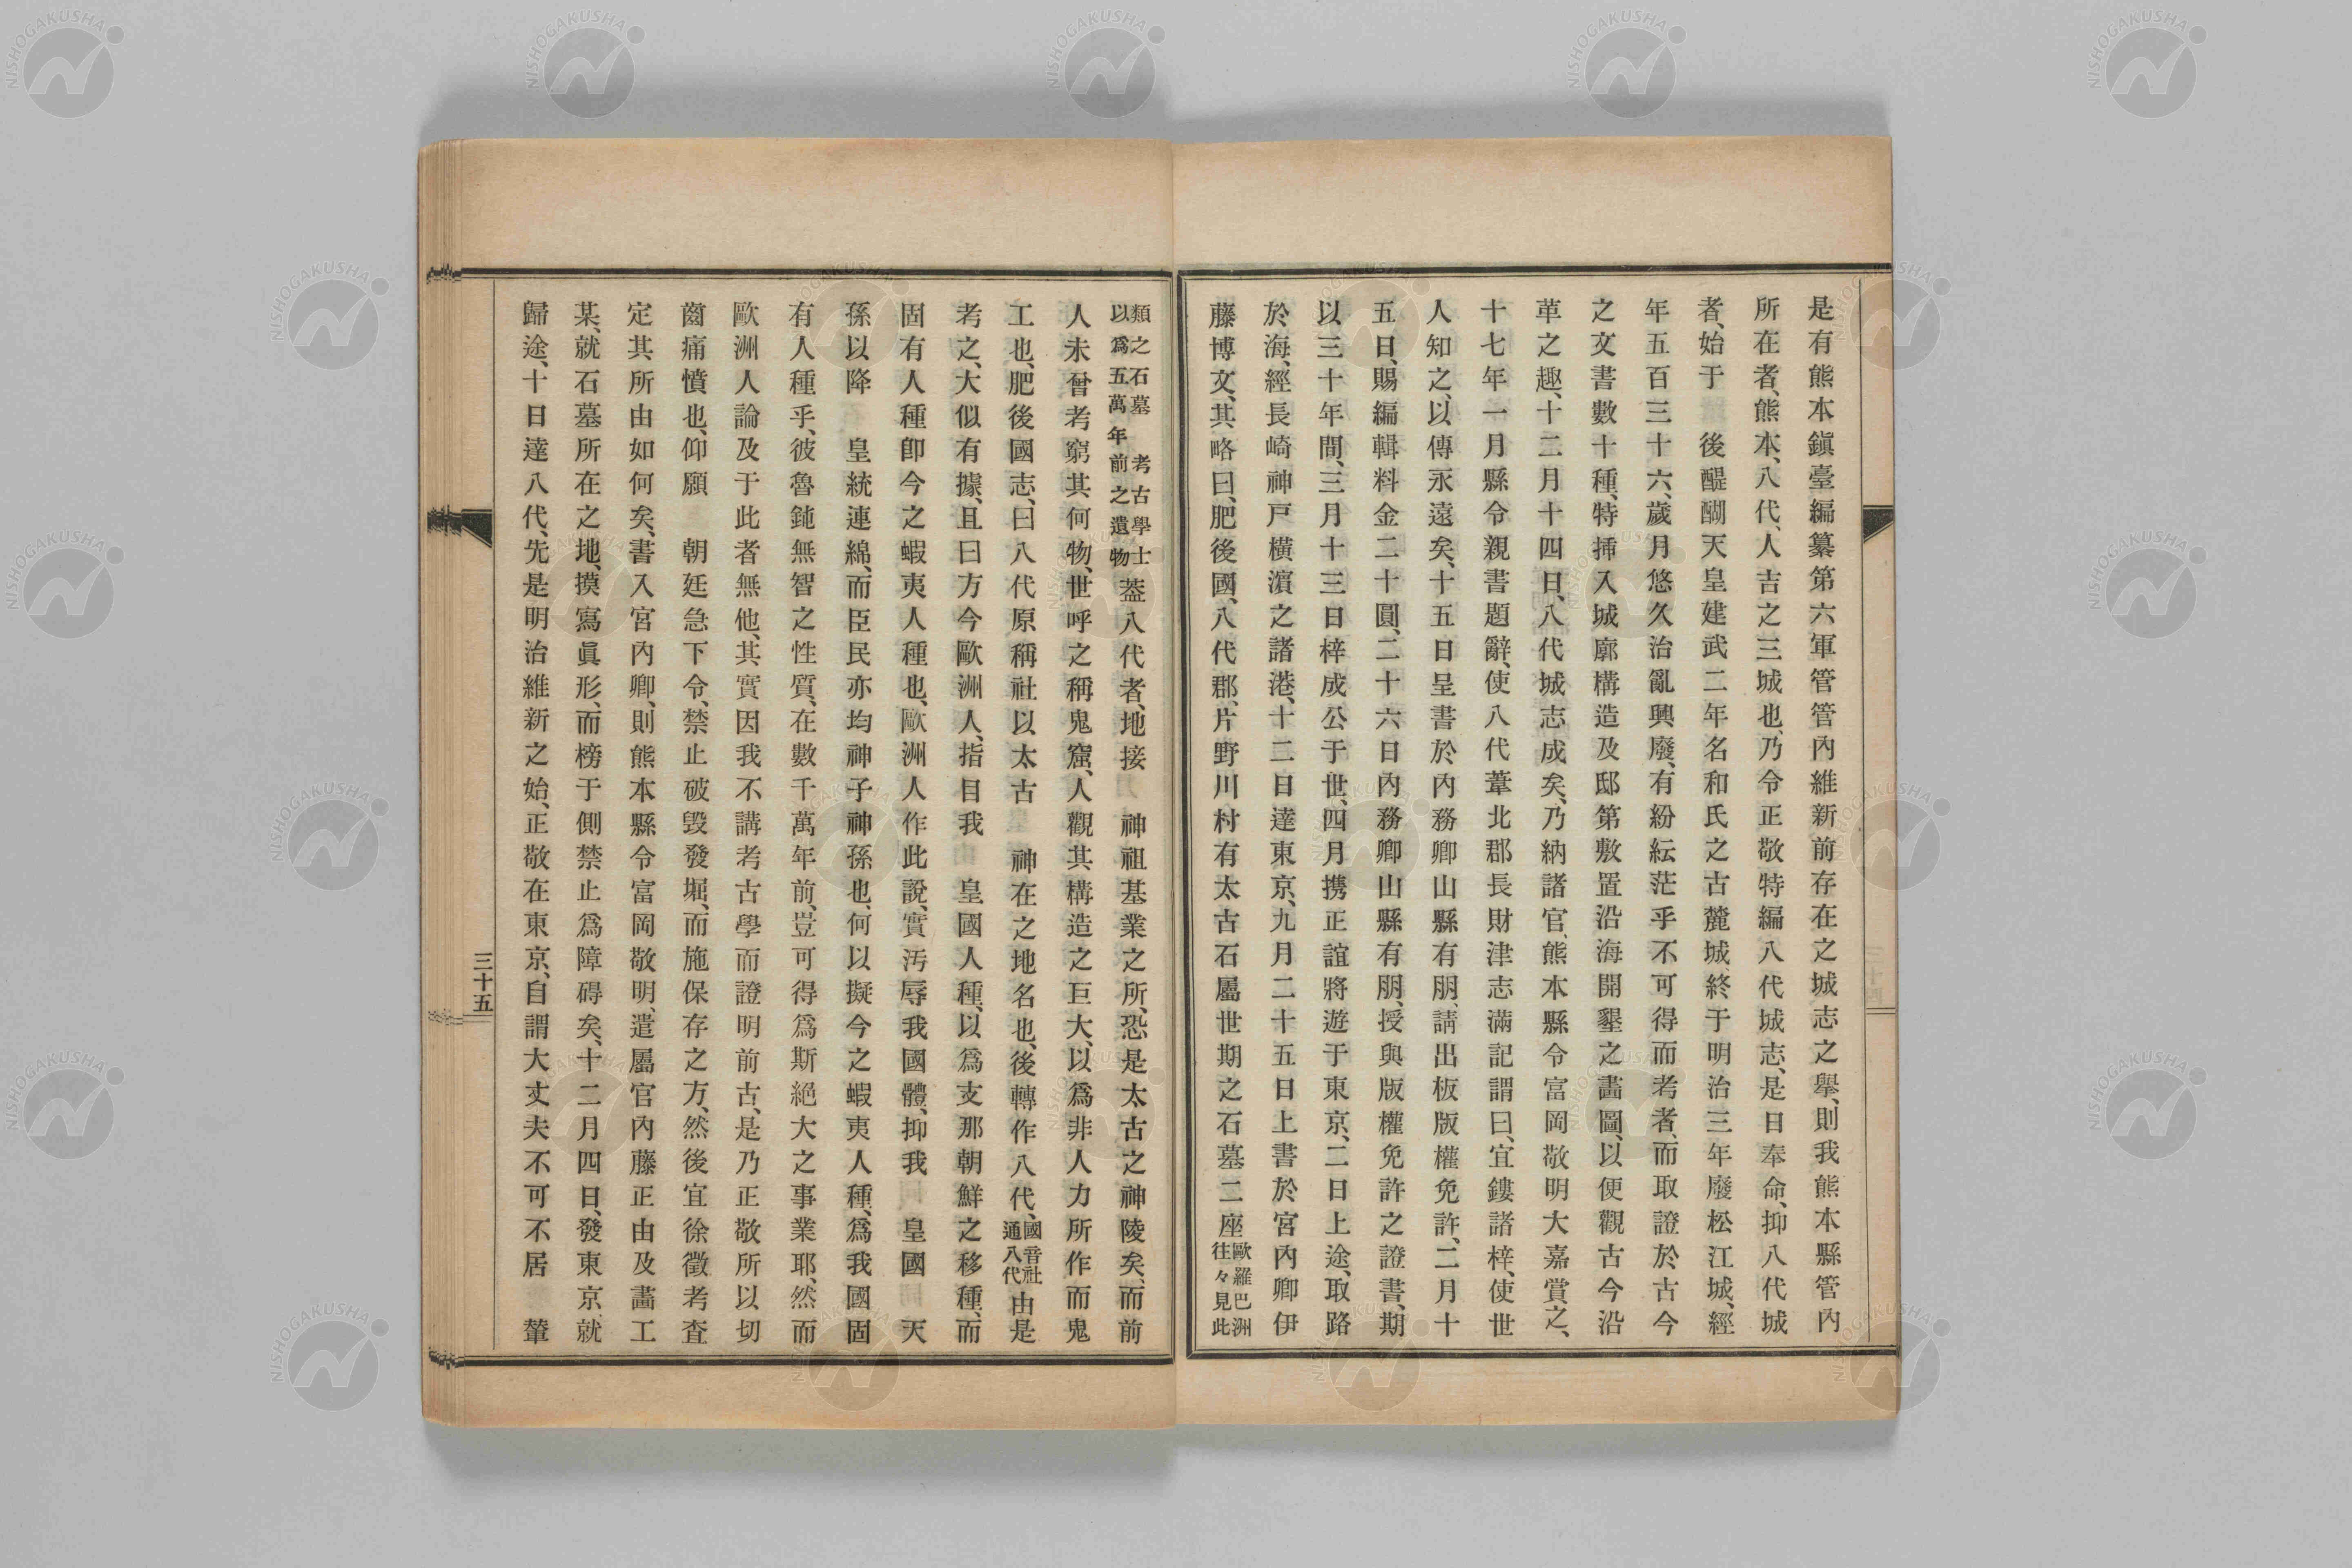 是有熊本鎭臺編纂第六軍管管內維新前存在之城志之擧、則我熊本縣管內
所在者、熊本、八代、人吉之三城也、乃令正敬特編八代城志、是日奉命、抑八代城
者、始于　後醍醐天皇建武二年名和氏之古麓城、終于明治三年廢松江城、經
年五百三十六、歲月悠久治亂興廢、有紛紜茫乎不可得而考者、而取證於古今
之文書數十種、特揷入城廓構造及邸第敷置沿海開墾之畵圖、以便觀古今沿
革之趣、十二月十四日、八代城志成矣、乃納諸官、熊本縣令富岡敬明大嘉賞之、
十七年一月縣令親書題辭、使八代葦北郡長財津志滿記謂曰、宜鏤諸梓、使世
人知之、以傳永遠矣、十五日呈書於內務卿山縣有朋、請出板版權免許、二月十
五日、賜編輯料金二十圓、二十六日內務卿山縣有朋、授與版權免許之證書、期
以三十年間、三月十三日梓成公于世、四月携正誼將遊于東京、二日上途、取路
於海、經長崎神戸橫濵之諸港、十二日達東京、九月二十五日上書於宮內卿伊
藤博文、其略曰、肥後國、八代郡、片野川村有太古石屬世期之石墓二座歐羅巴洲往々見此
類之石墓　考古學士以爲五萬年前之遺物葢八代者、地接　神祖基業之所、恐是太古之神陵矣、而前
人未曾考窮其何物、世呼之稱鬼窟、人觀其構造之巨大、以爲非人力所作而鬼
工也、肥後國志、曰八代原稱社以太古　神在之地名也、後轉作八代、國音社通八代由是
考之、大似有據、且曰方今歐洲人、指目我　皇國人種、以爲支那朝鮮之移種、而
固有人種卽今之蝦夷人種也、歐洲人作此說、實汚辱我國體、抑我　皇國　天
孫以降　皇統連綿、而臣民亦均神子神孫也、何以擬今之蝦夷人種、爲我國固
有人種乎、彼魯鈍無智之性質、在數千萬年前、豈可得爲斯絕大之事業耶、然而
歐洲人論及于此者無他、其實因我不講考古學而證明前古、是乃正敬所以切
齒痛憤也、仰願　朝廷急下令、禁止破毀發堀、而施保存之方、然後宜徐徵考査
定其所由如何矣、書入宮內卿、則熊本縣令富岡敬明、遣屬官內藤正由及畵工
某、就石墓所在之地、摸寫眞形、而榜于側禁止爲障碍矣、十二月四日、發東京、就
歸途、十日達八代、先是明治維新之始、正敬在東京、自謂大丈夫不可不居　輦
三十五
NISHOGAKUSHA